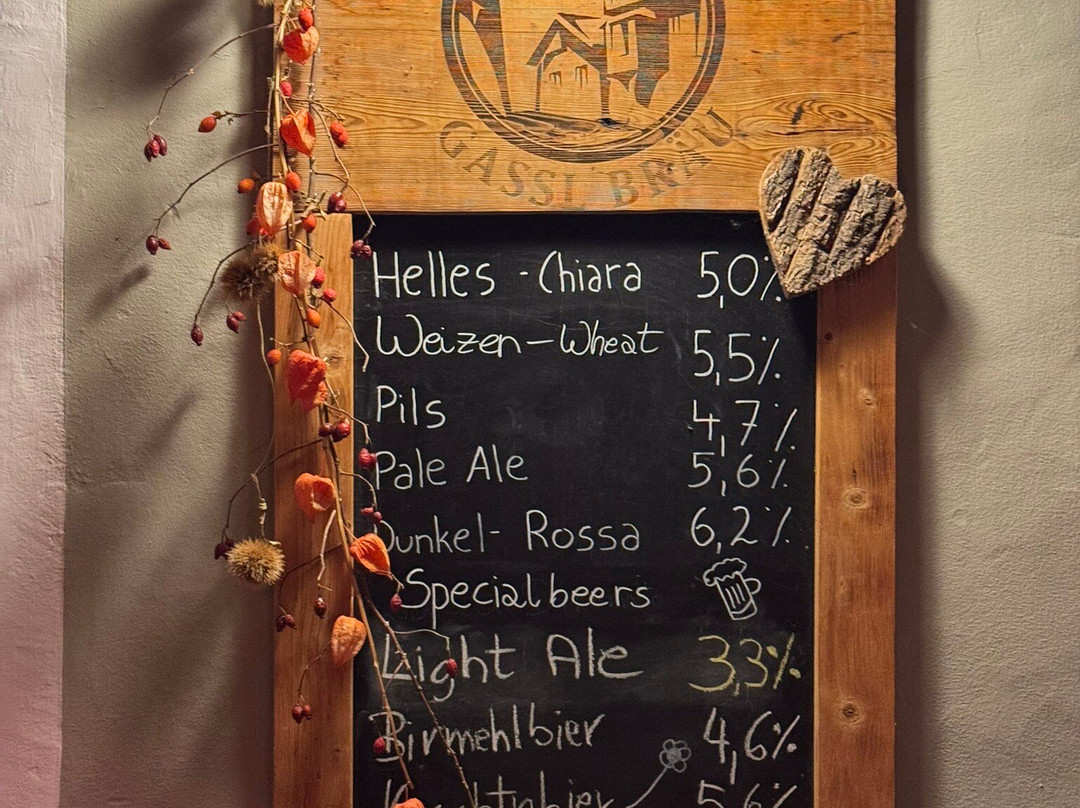 GASSL BRÄU
Helles - Chiara 5,0%
Weizen - Wheat 5,5%
Pils 4,7%
Pale Ale 5,6%
Dunkel - Rossa 6,2%
Special beers
Light Ale 3,3%
Birmehlbier 4,6%
5,6%